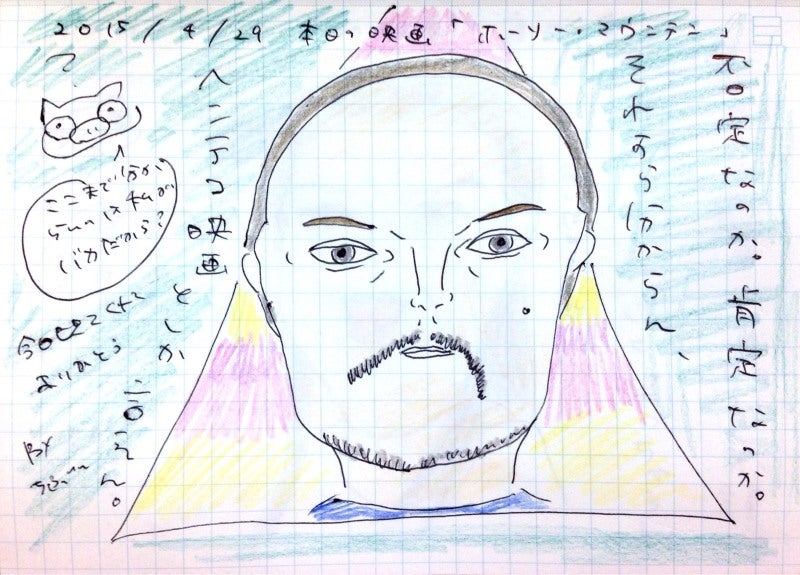 2015/4/29 本日の映画「ホーリー・マウンテン」
否定なのか。肯定なのか。
それすら分からん、
ヘンテコ映画としか
言えん。
ここまで分か
らないのは私が
バカだから？
ありがとう
By